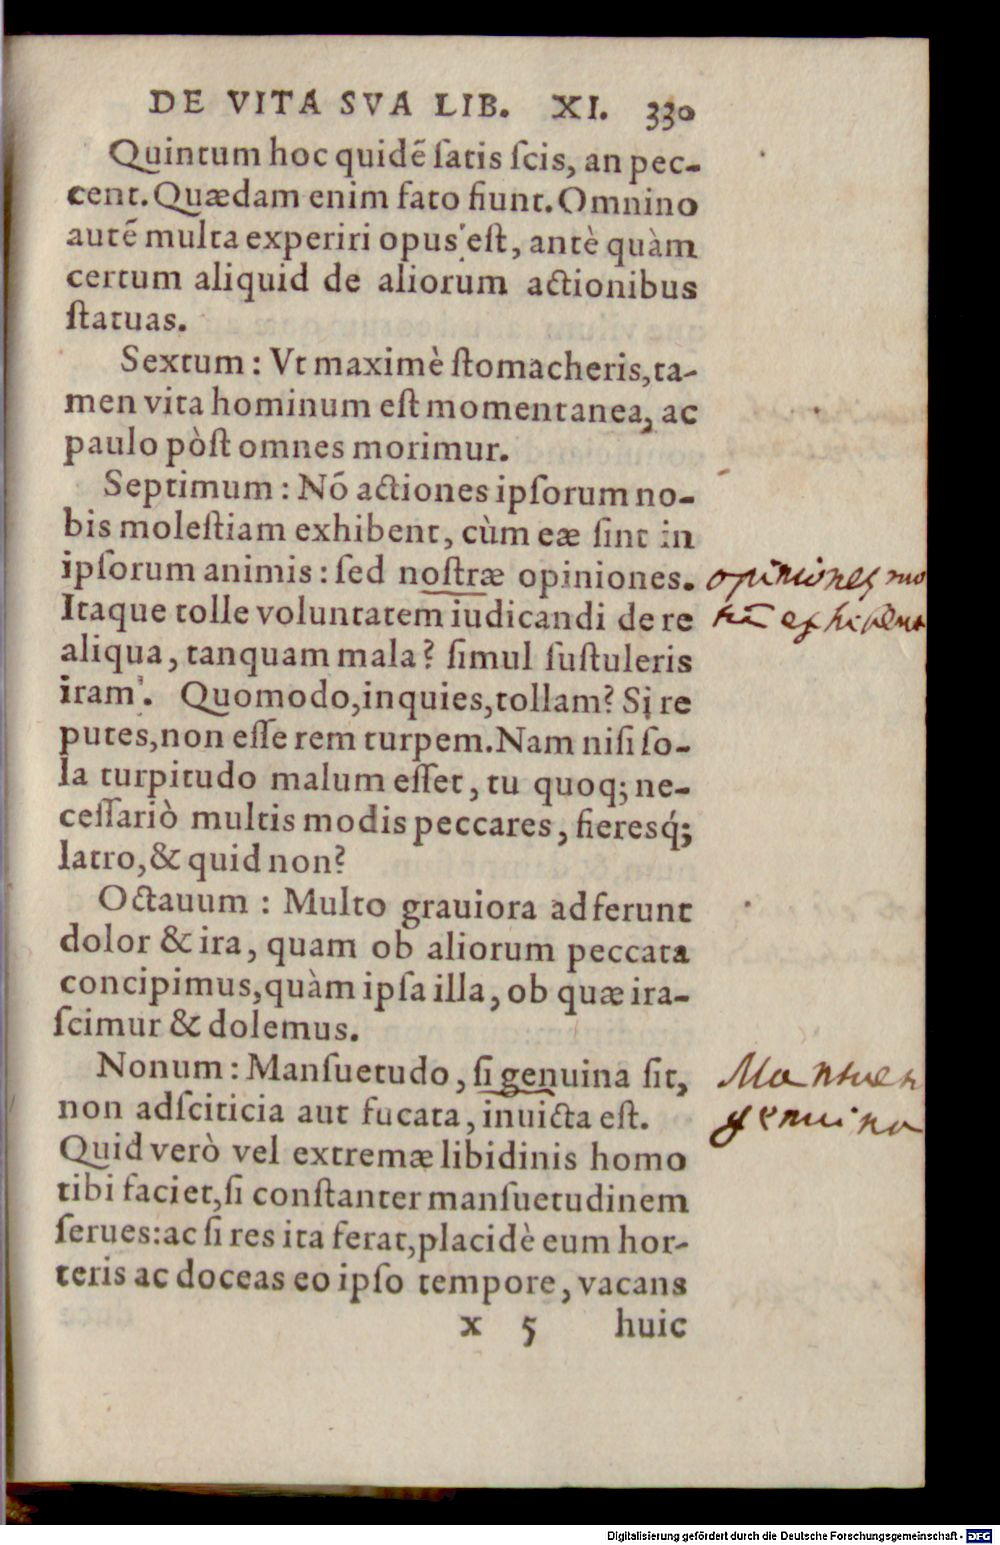 DE VITA SVA LIB. XI. 330
Quintum hoc quidẽ ſatis ſcis, an pec-
cent. Quædam enim fato fiunt. Omnino
autẽ multa experiri opus eſt, antè quàm
certum aliquid de aliorum actionibus
ſtatuas.
Sextum : Vt maximè ſtomacheris, ta-
men vita hominum eſt momentanea, ac
paulo pòſt omnes morimur.
Septimum : Nõ actiones ipſorum no-
bis moleſtiam exhibent, cùm eæ ſint in
ipſorum animis : ſed noſtræ opiniones.
opiniones mo
Itaque tolle voluntatem iudicandi de re
exhibent
aliqua, tanquam mala? ſimul ſuſtuleris
iram. Quomodo, inquies, tollam? Si re
putes, non eſſe rem turpem. Nam niſi ſo-
la turpitudo malum eſſet, tu quoq; ne-
ceſſariò multis modis peccares, fieresq́;
latro, & quid non?
Octauum : Multo grauiora adferunt
dolor & ira, quam ob aliorum peccata
concipimus, quàm ipſa illa, ob quæ ira-
ſcimur & dolemus.
Nonum : Manſuetudo, ſi genuina ſit,
Mansuet
non adſciticia aut fucata, inuicta eſt.
genuina
Quid verò vel extremæ libidinis homo
tibi faciet, ſi conſtanter manſuetudinem
ſerues: ac ſi res ita ferat, placidè eum hor-
teris ac doceas eo ipſo tempore, vacans
x 5 huic
Digitalisierung gefördert durch die Deutsche Forschungsgemeinschaft - DFG